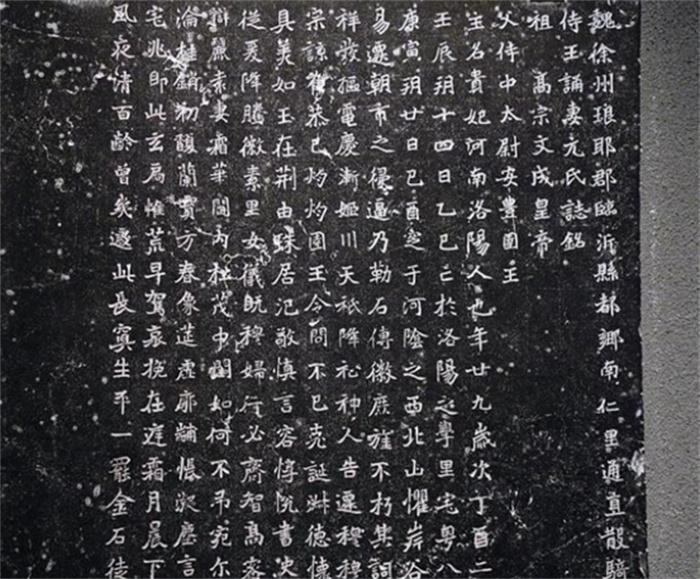 魏徐州琅耶郡臨沂縣都鄉南仁里通直散騎
侍王誦妻元氏誌銘
祖 高宗文成皇帝
父侍中太尉安豐圉王
主名貴妃河南洛陽人也年廿九歲次丁酉二
壬辰玥十四日乙巳亡於洛陽之學里宅粵八
庚寅玥廿日己酉窆于河陰之西北山懼岸谷
易遷朝市之侵逼乃勒石傳徽庶旌不朽其詞
祥發樞電慶漸姬川天祇降祉神人告遷穆穆
宗諒恭己灼灼圉王令問不已克誕淑德懷
具美如玉在荊由珠居汜敬慎言容惇悅書史
從爰降騰徽素里女儀既穆婦行必齊智高密
辯麗素妻霜華闈內桂茂中閨如何不弔宛尒
淪桂銷初馥蘭實方春像筵虛廓黼帳凝塵言
宅兆即此玄扃惟荒早駕哀挽在庭霜月晨下
風夜清百齡曾矣遽此長冥生平一罷金石徒